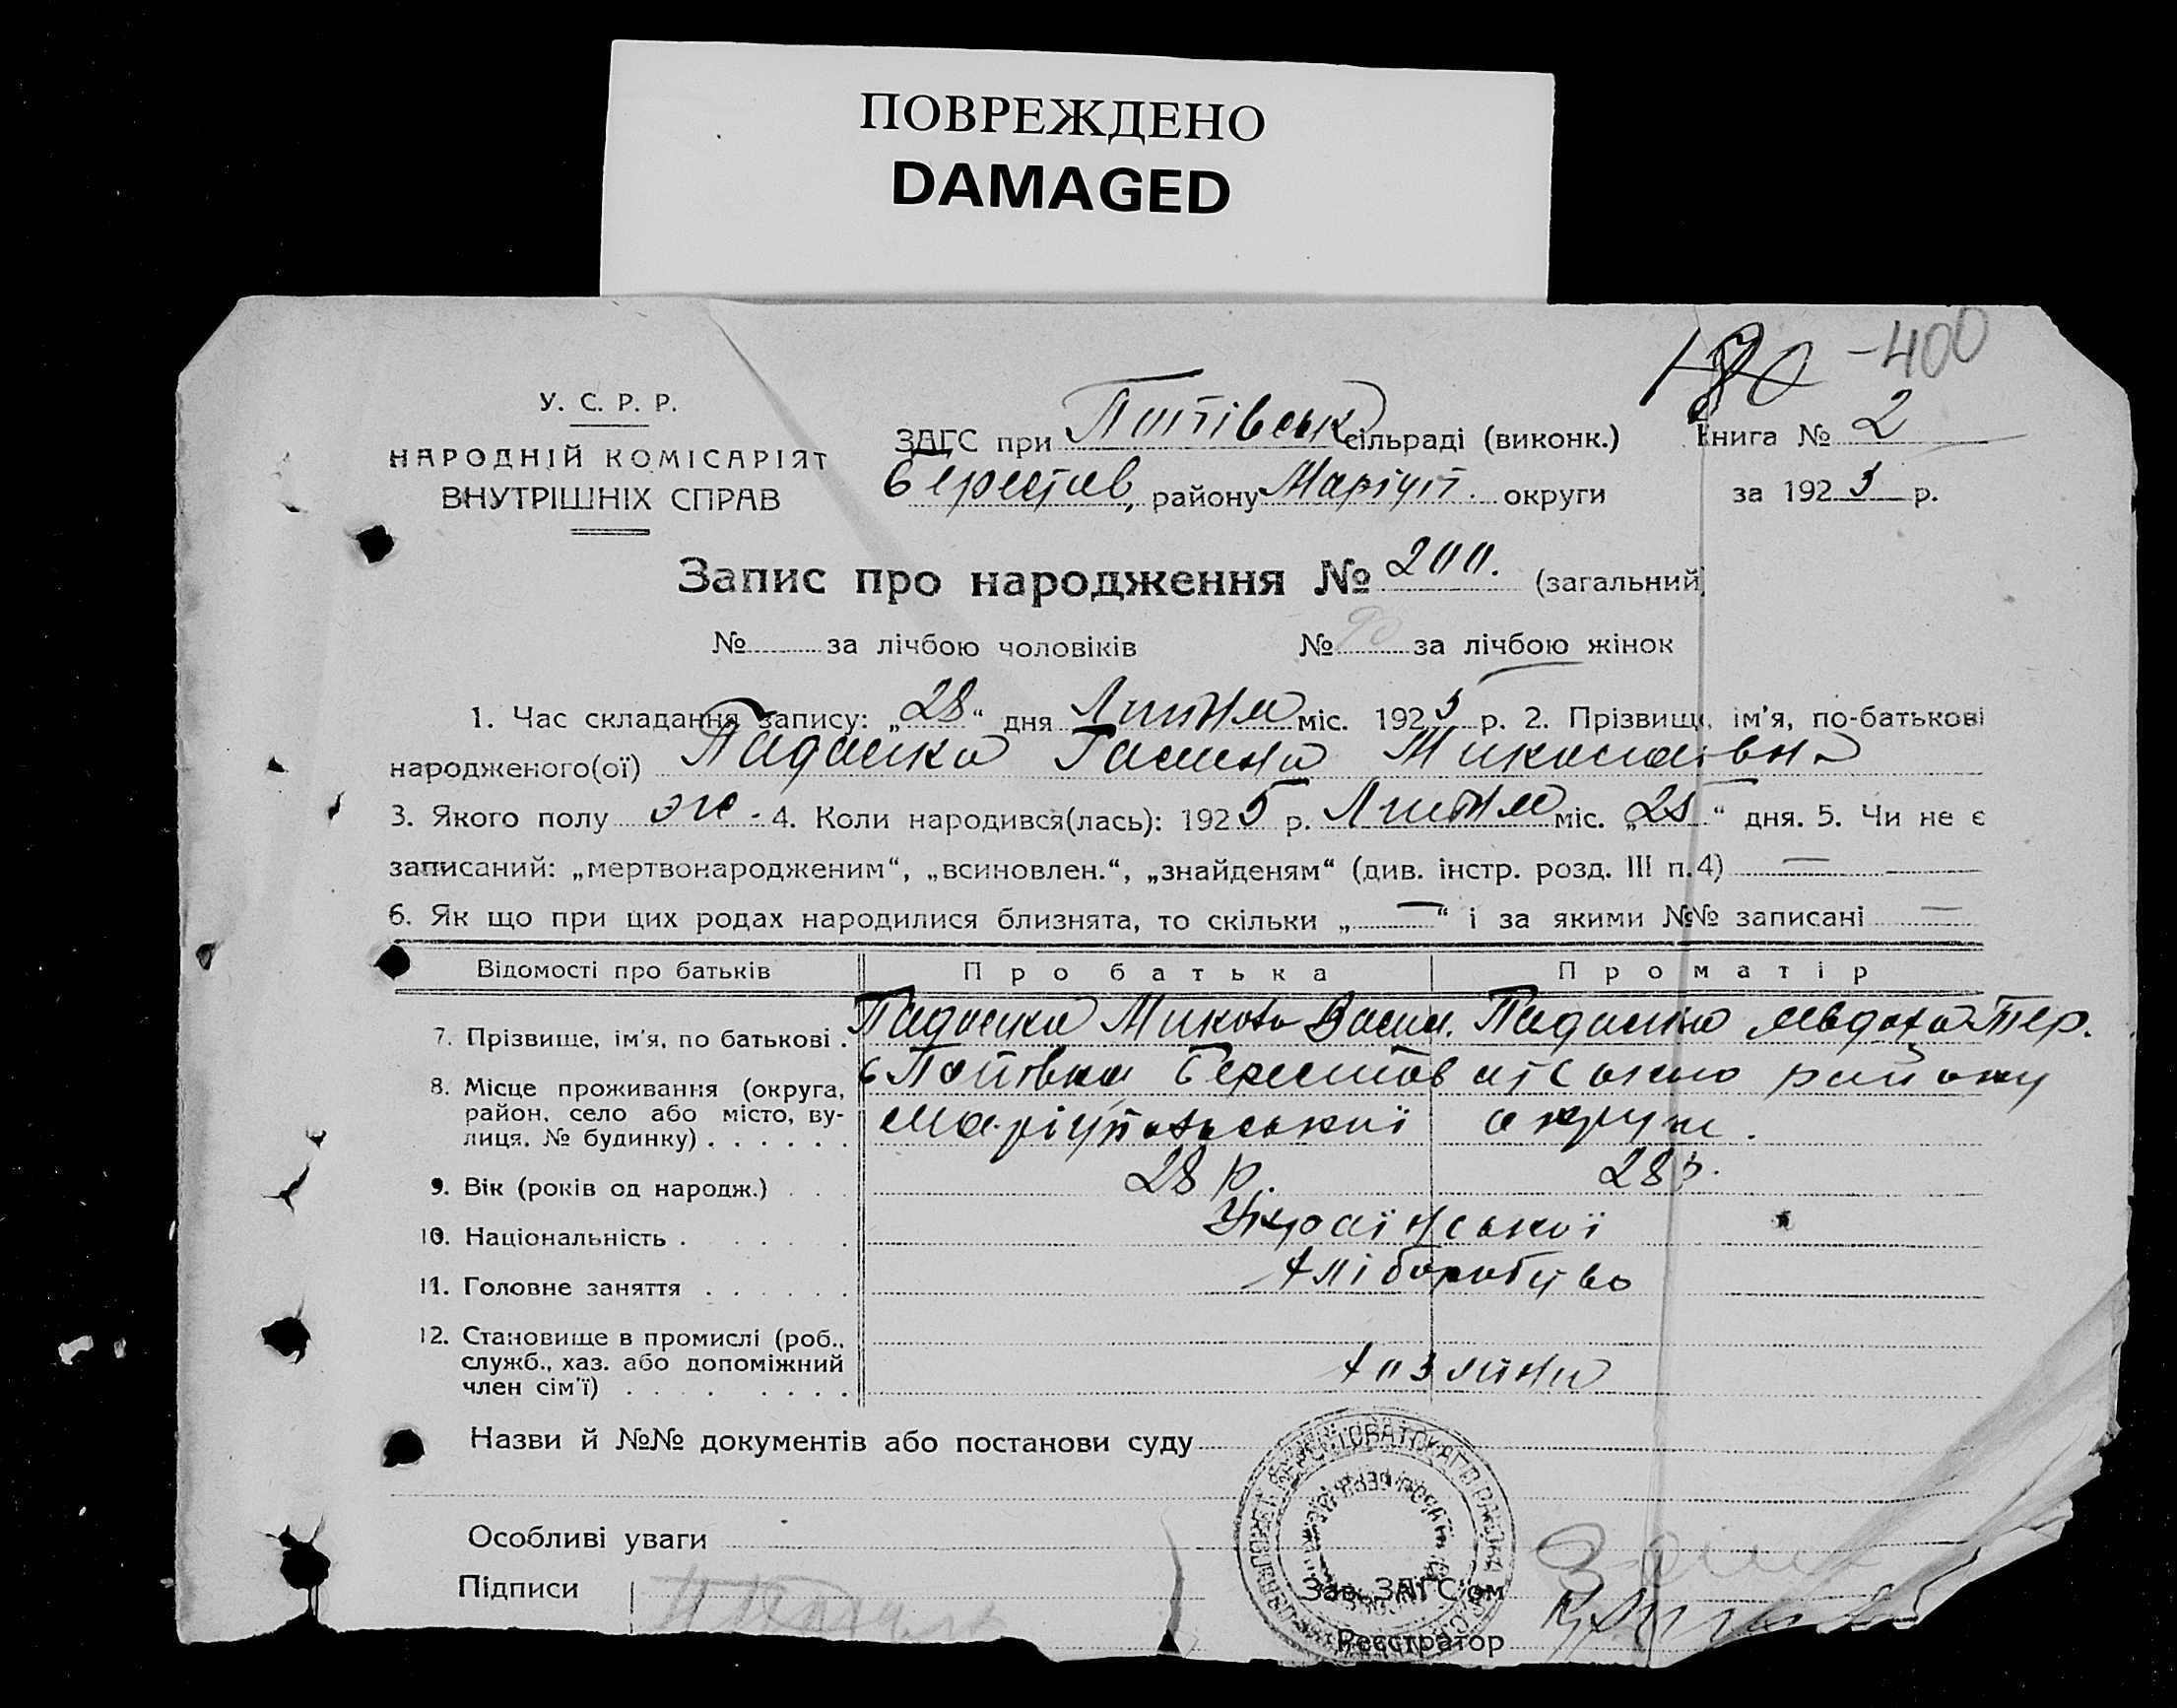 ПОВРЕЖДЕНО
DAMAGED
-400
У. С. Р. Р.
НАРОДНІЙ КОМІСАРІЯТ
ВНУТРІШНІХ СПРАВ
ЗАГС при Попівськ сільраді (виконк.) Книга № 2
Берестов, району Маріуп. округи за 1925 р.
Запис про народження № 200. (загальний)
№ за лічбою чоловіків № 90 за лічбою жінок
1. Час складання запису: „28“ дня Липня міс. 1925 р. 2. Прізвище, ім'я, по-батькові
народженого(ої) Падалка Галина Миколаівна
3. Якого полу ж. 4. Коли народився(лась): 1925 р. Липня міс. „25“ дня. 5. Чи не є
записаний: „мертвонародженим“, „всиновлен.“, „знайденям“ (див. інстр. розд. III п. 4) —
6. Як що при цих родах народилися близнята, то скільки „—“ і за якими №№ записані —
Відомості про батьків Про батька Про матір
7. Прізвище, ім'я, по батькові . Падалка Микола Васил. Падалка Явдоха Тер.
8. Місце проживання (округа, с Попівка Берестоватського району
район, село або місто, ву-
лиця, № будинку) . . . . . . Маріупольської округи.
9. Вік (років од народж.) . . . 28 р. 28 р.
10. Національність . . . . . Української
11. Головне заняття . . . . . . Хліборобство
12. Становище в промислі (роб.,
служб., хаз. або допоміжний
член сім'ї) . . . . . . . . Хазяїни
Назви й №№ документів або постанови суду
Особливі уваги
Підписи Зав. ЗАГС'ом
Реєстратор